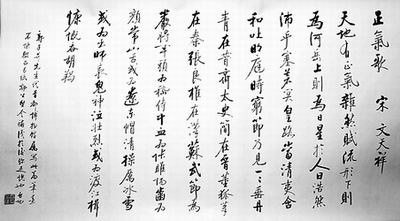 正氣歌 宋 文天祥
天地有正氣雜然賦流形下則
為河岳上則為日星於人曰浩然
沛乎塞蒼冥皇路當清夷含
和吐明庭時窮節乃見一一垂丹
青在齊太史簡在晉董狐筆
在秦張良椎在漢蘇武節為
嚴將軍頭為嵇侍中血為張睢陽齒為
顏常山舌或為遼東帽清操厲冰雪
或為出師表鬼神泣壯烈或為渡江楫
慷慨吞胡羯